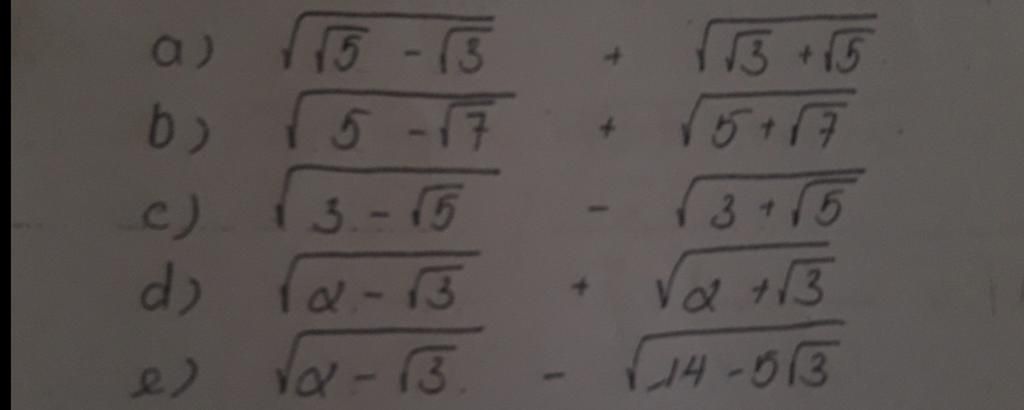 a) √(√5 - √3) + √(√3 + √5)
b) √(5 - √7) + √(5 + √7)
c) √(3 - √5) - √(3 + √5)
d) √(α - √3) + √(α + √3)
e) √(α - √3) - √(14 - 5√3)